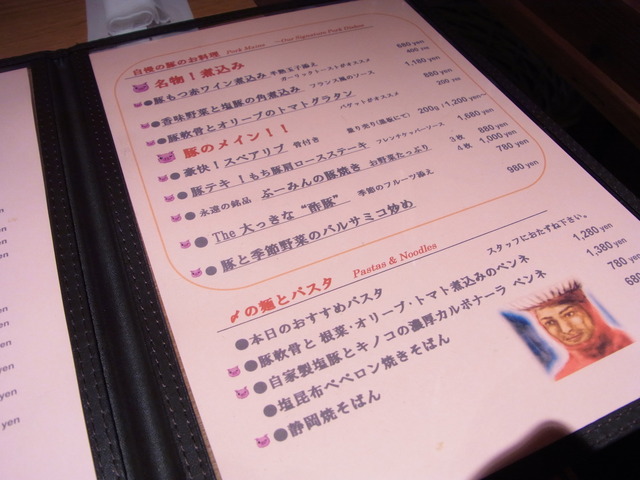 自慢の豚のお料理 Pork Menu ~Our Signature Pork Dishes
名物！煮込み
豚もつ赤ワイン煮込み 半熟玉子添え 680 yen
ガーリックトーストがオススメ 400 yen
香味野菜と塩豚の角煮込み フランス風のソース 1,180 yen
豚軟骨とオリーブのトマトグラタン 880 yen
バゲットがオススメ 200 yen
豚のメイン！！
豪快！スペアリブ 骨付き 量り売り(黒板にて) 200g 1,200 yen~
豚テキ！もち豚肩ロースステーキ フレンチペッパーソース 1,680 yen
永遠の銘品 ぶーみんの豚焼き お野菜たっぷり 3枚 880 yen
4枚 1,000 yen
The 大っきな “酢豚” 季節のフルーツ添え 780 yen
豚と季節野菜のバルサミコ炒め 980 yen
〆の麺とパスタ Pastas & Noodles
本日のおすすめパスタ スタッフにおたずね下さい。
豚軟骨と 根菜・オリーブ・トマト煮込みのペンネ 1,280 yen
自家製塩豚とキノコの濃厚カルボナーラ ペンネ 1,380 yen
塩昆布ペペロン焼きそばん 780 yen
静岡焼そばん 680
yen
yen
yen
yen
yen
yen
yen